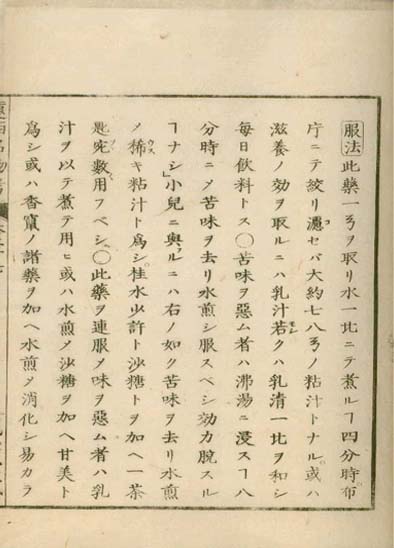 服法此藥一ㄋヲ取リ水一比ニテ煮ルヿ四分時布
庁ニテ絞リ漉セバ大約七八ㄋノ粘汁トナル。或ハ
滋養ノ効ヲ取ルニハ乳汁若クハ乳清一比ヲ和シ
毎日飲料トス〇苦味ヲ惡ム者ハ沸湯ニ浸スヿ八
分時ニ〆苦味ヲ去リ水煎シ服スベシ効力脱スル
ヿナシ」小兒ニ與ルニハ右ノ如ク苦味ヲ去リ水煎
〆稀キ粘汁ト爲シ。桂水少許ト沙糖トヲ加ヘ一茶
匙宛數用フベシ。〇此藥ヲ連服〆味ヲ惡ム者ハ乳
汁ヲ以テ煮テ用ヒ或ハ水煎〆沙糖ヲ加ヘ甘美ト
爲シ或ハ香竄ノ諸藥ヲ加ヘ水煎〆消化シ易カラ